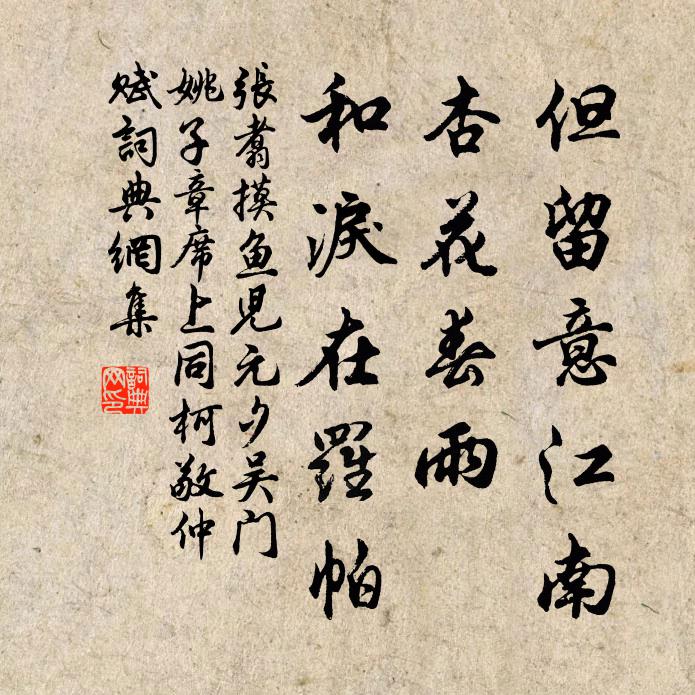 但留意江南
杏花春雨
和淚在羅帕
張翥摸鱼児元夕吴门
姚子章席上同柯敬仲
赋詞典網集
詞典網印